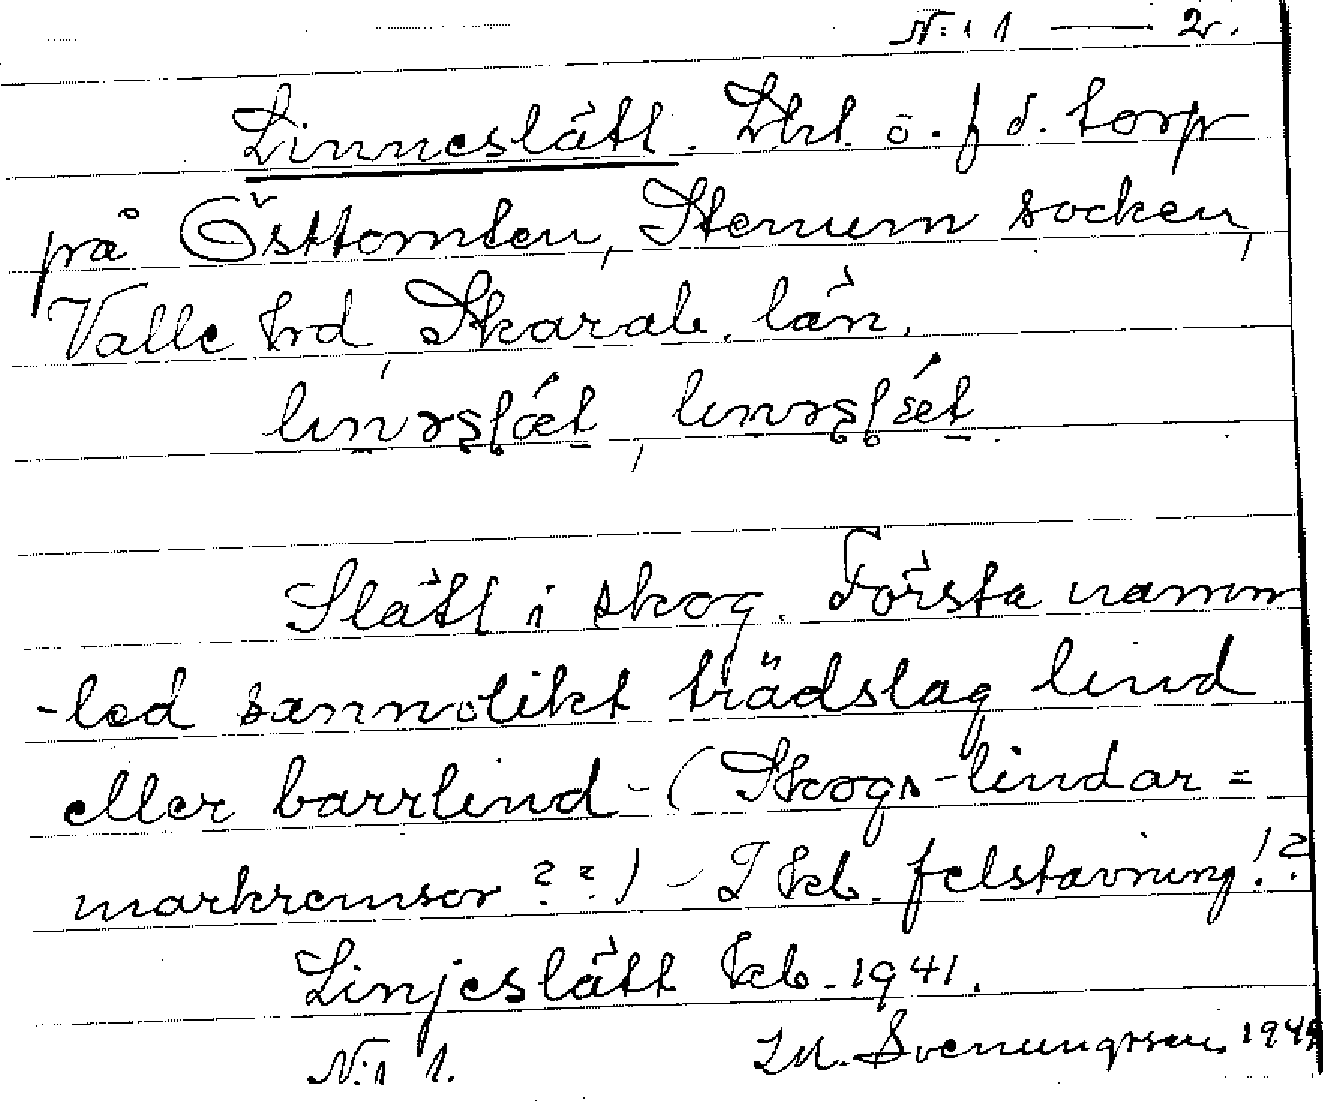 N:r 1 — 2.
Linneslätt. Lht. o. f d. torp
på Östtomten, Stenum socken,
Valle hrd, Skarab. län.
Slätt i skog. Första namn
-led sannolikt trädslag lind
eller barrlind - (Skogs-lindar =
markremsor ??) - I kb. felstavning!?
Linjeslätt kb. 1941.
N:r 1. Svenungsson 1949